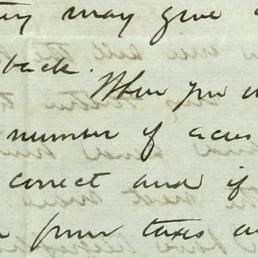 may give
back.
When you
number of acres
correct and if
from taxes